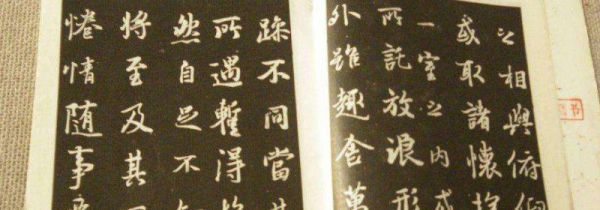 之相與俯仰
或取諸懷抱
一室之内或
所託放浪形
外雖趣舍萬
躁不同當其
所遇暫得於
然自足不知
將至及其
惓情随事遷